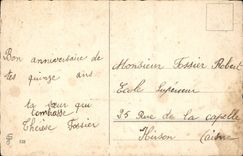 Bon anniversaire de
tes quinze ans
ta sœur qui
t'embrasse
Thérèse Fossier
Monsieur Fossier Robert
Ecole Supérieur
25 Rue de la capelle
Hirson (Aisne)